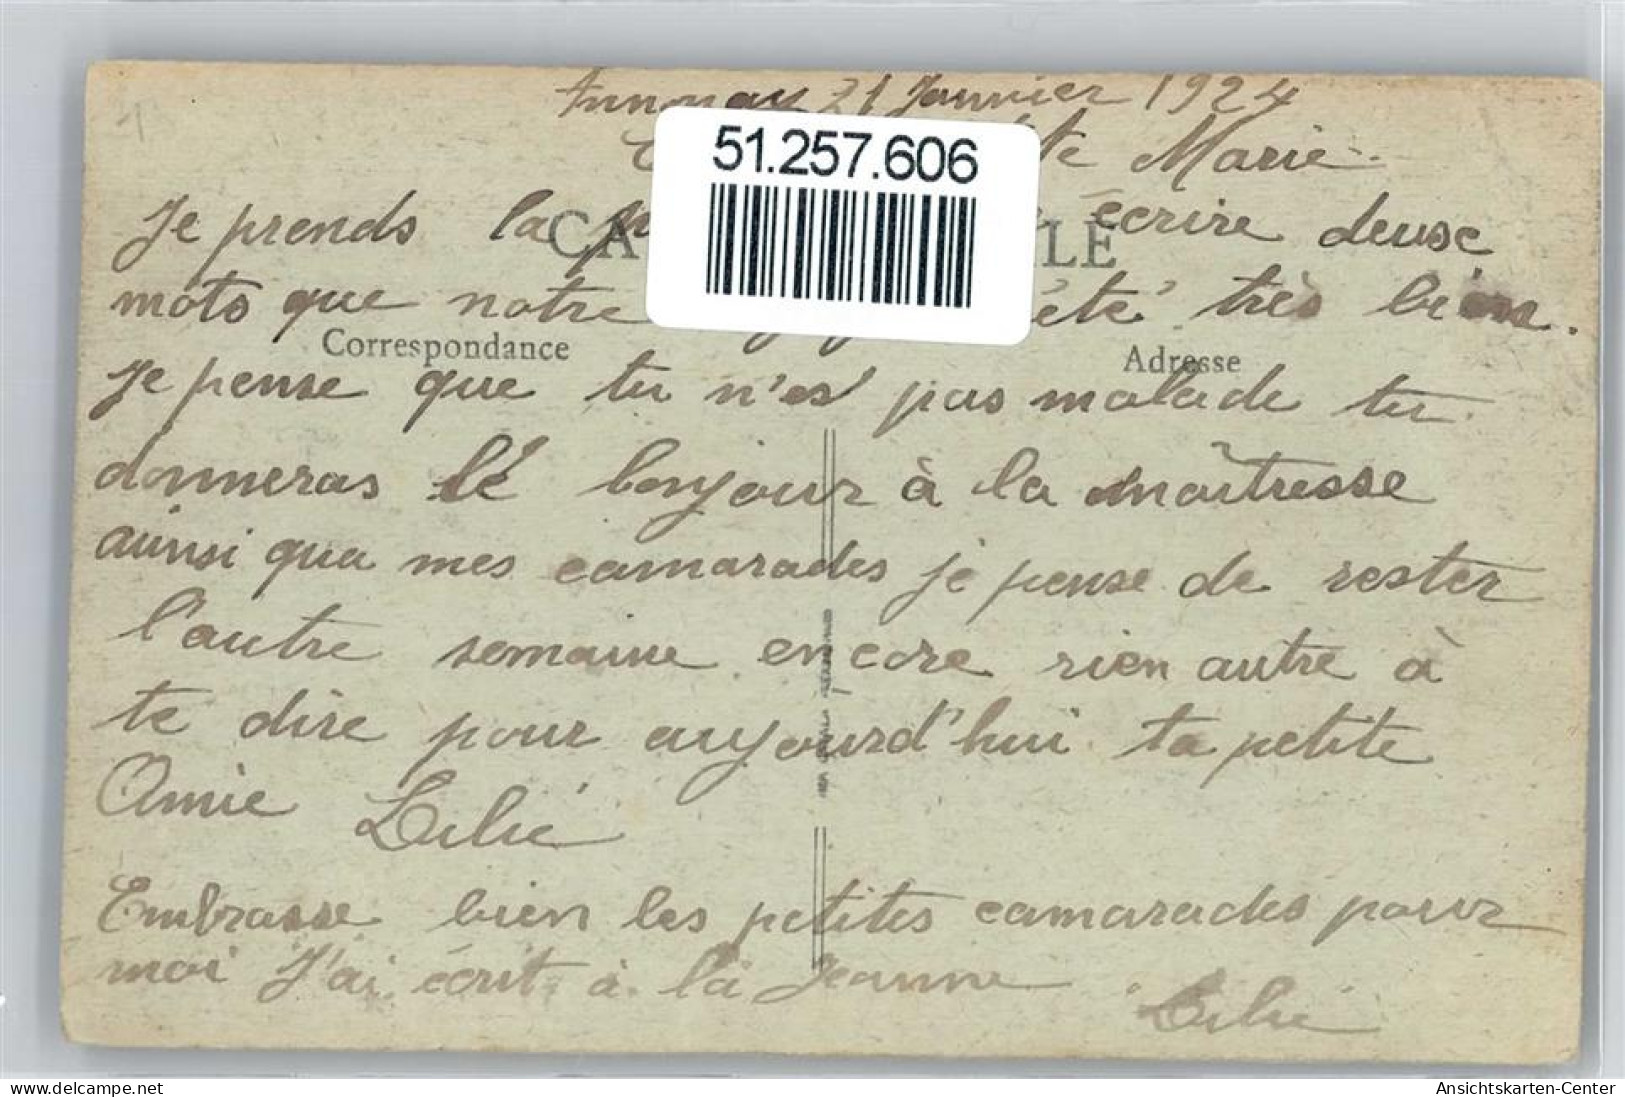 Annonay 21 Janvier 1924
51.257.606
te Marie
Je prends la écrire deuse
CA LE
mots que notre été très bien.
Correspondance Adresse
Je pense que tu n'es pas malade tu
donneras lé bonjour à la maîtresse
ainsi qua mes camarades je pense de rester
l'autre semaine encore rien autre à
te dire pour aujourd'hui ta petite
Amie Lilie
Embrasse bien les petites camarades pour
moi J'ai écrit à la Jeanne
Lilie
Ansichtskarten-Center